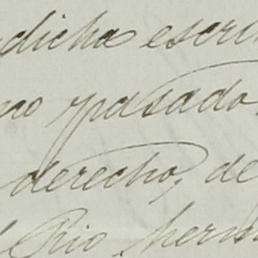 dicha escri
no pasado,
derecho, de
Rio, herm